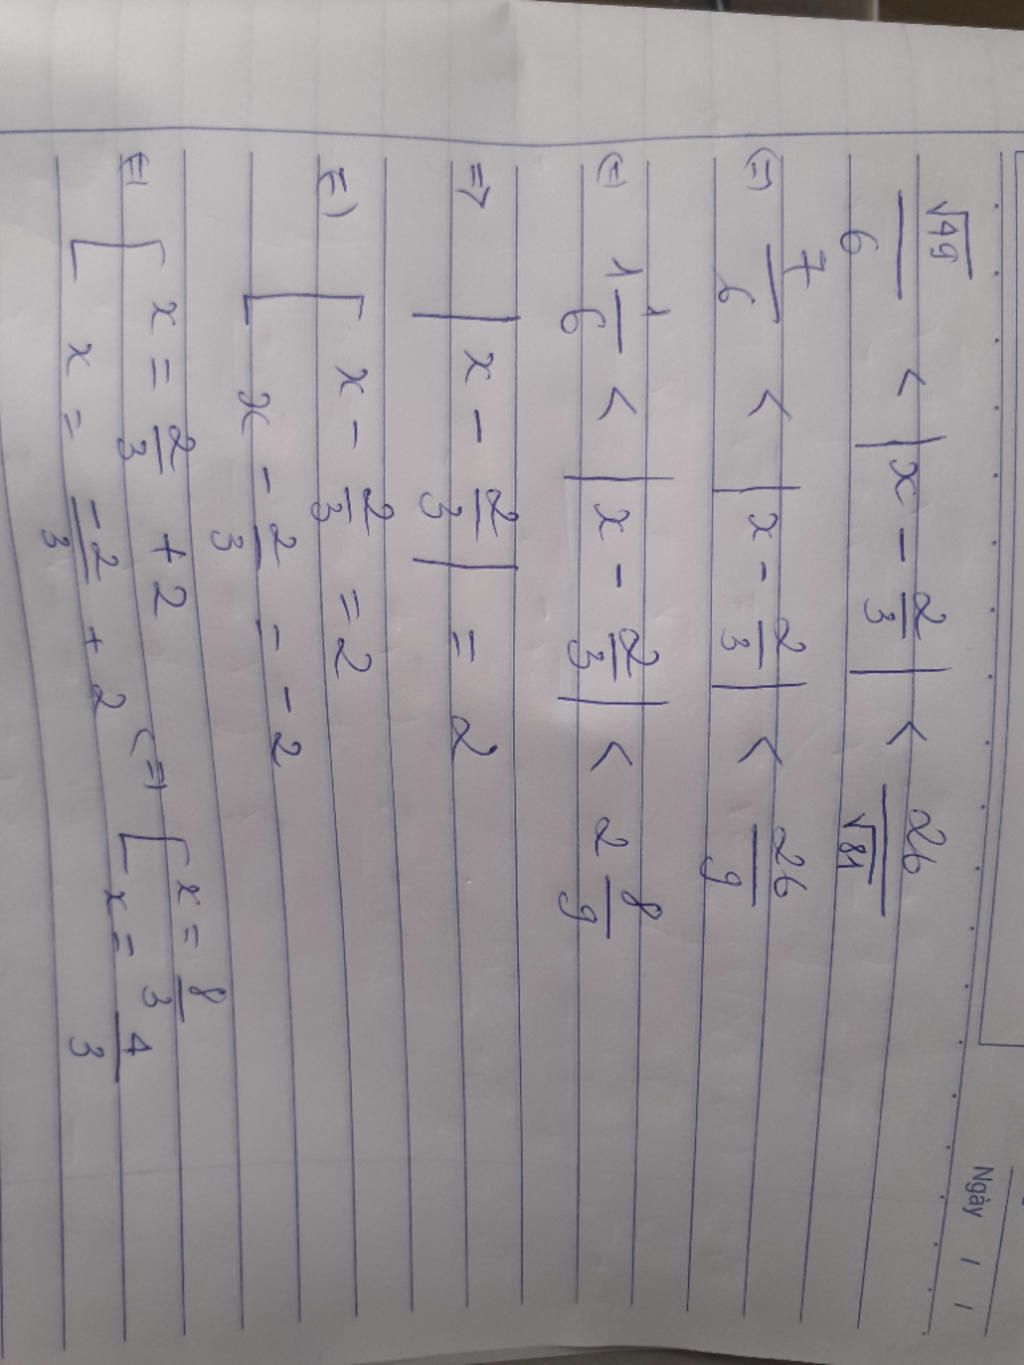 Ngày / /
√49/6 < |x - 2/3| < 26/√81
(=) 7/6 < |x - 2/3| < 26/9
(=) 1 1/6 < |x - 2/3| < 2 8/9
=> |x - 2/3| = 2
(=) [ x - 2/3 = 2
x - 2/3 = -2
(=) [ x = 2/3 + 2
x = -2/3 + 2 (=) [ x = 8/3
x = 4/3